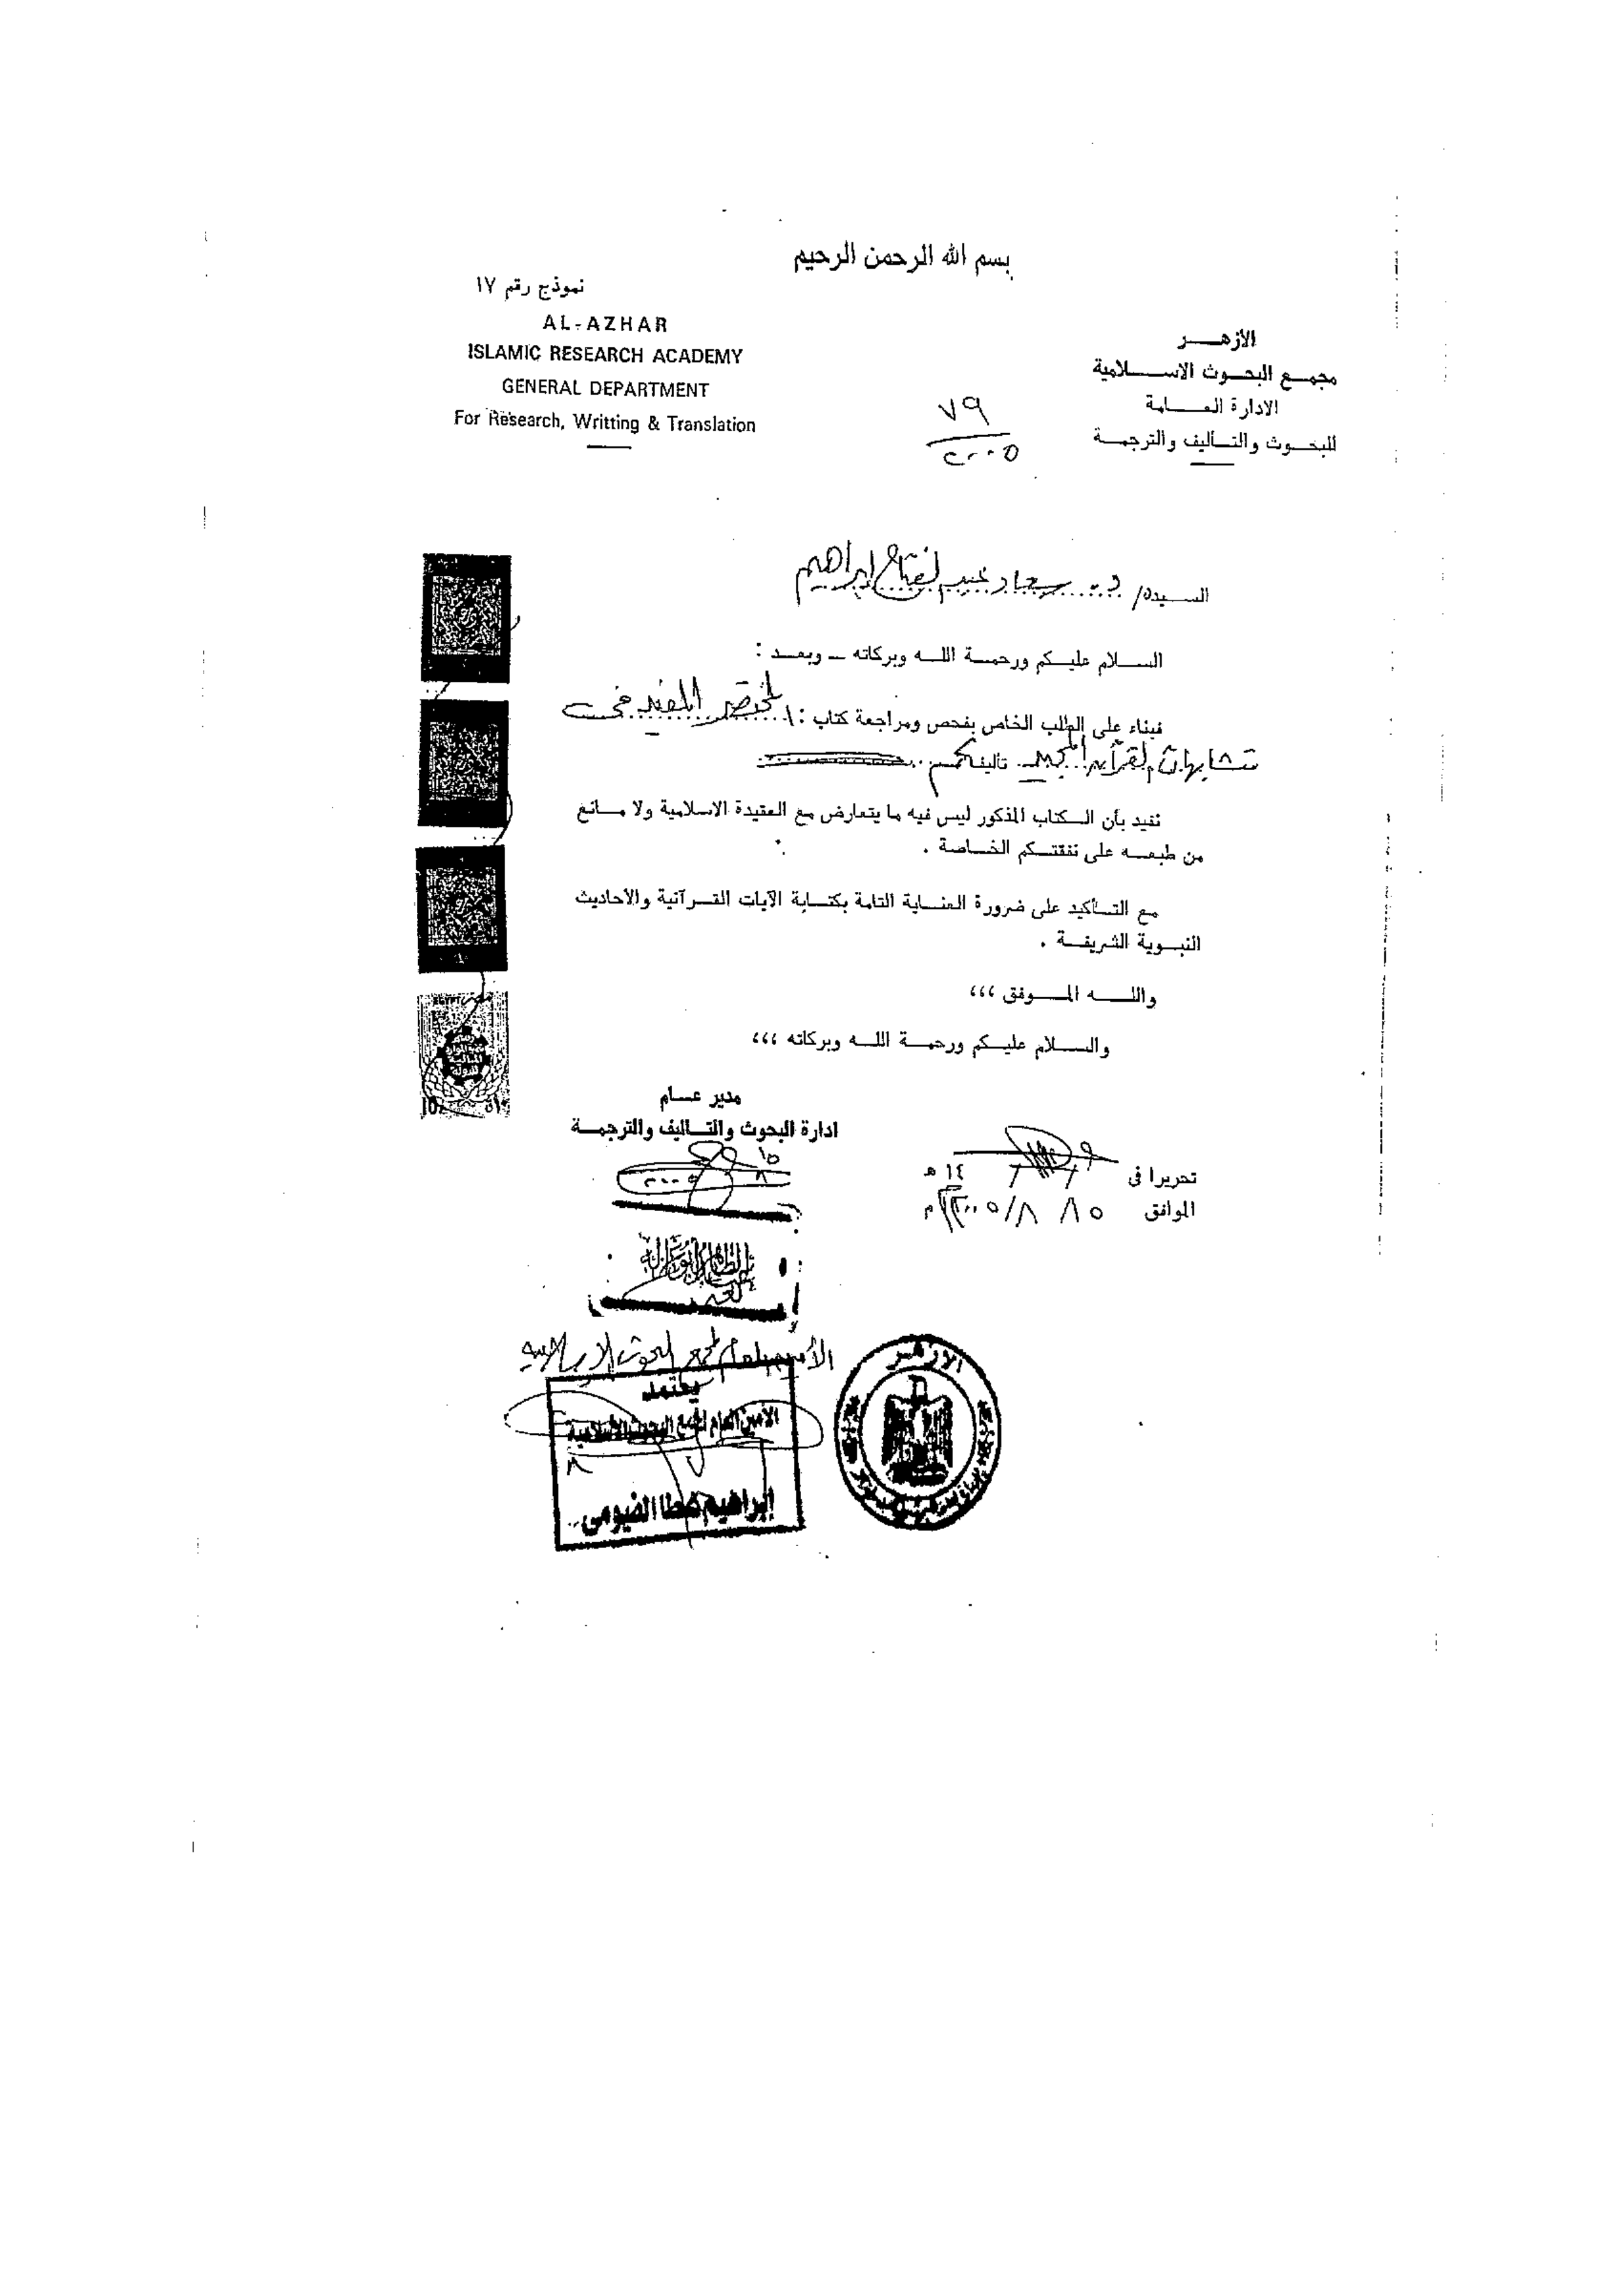 بسم الله الرحمن الرحيم
نموذج رقم ١٧
AL-AZHAR
ISLAMIC RESEARCH ACADEMY
GENERAL DEPARTMENT
For Research, Writting & Translation
الأزهــر
مجمـع البحـوث الاسـلامية
الادارة العـامة
للبحـوث والتـأليف والترجمـة
٧٩
٢٠٠٥
السـيدة/ د. سعاد عبد الفتاح إبراهيم
السـلام عليـكم ورحمـة اللـه وبركاته ــ وبعـد :
فبناء على الطلب الخاص بفحص ومراجعة كتاب : المختصر المفيد في
متشابهات القرآن المجيد تأليفكم
نفيد بأن الـكتاب المذكور ليس فيه ما يتعارض مع العقيدة الاسلامية ولا مـانع
من طبعـه على نفقتـكم الخـاصة .
مع التـأكيد على ضرورة العنـاية التامة بكتـابة الآيات القـرآنية والأحاديث
النبـوية الشريفـة .
واللـه المـوفق ،،،
والسـلام عليـكم ورحمـة اللـه وبركاته ،،،
مدير عـام
ادارة البحوث والتـأليف والترجمـة
١٥
٨
٢٠٠٥
تحريرا فى / / ١٤ هـ
الموافق ١٥ / ٨ / ٢٠٠٥ م
الأمين العام لمجمع البحوث الإسلامية
يعتمد
الأمين العام لمجمع البحوث الإسلامية
إبراهيم عطا الفيومى
الأزهـر
مصر
EGYPT